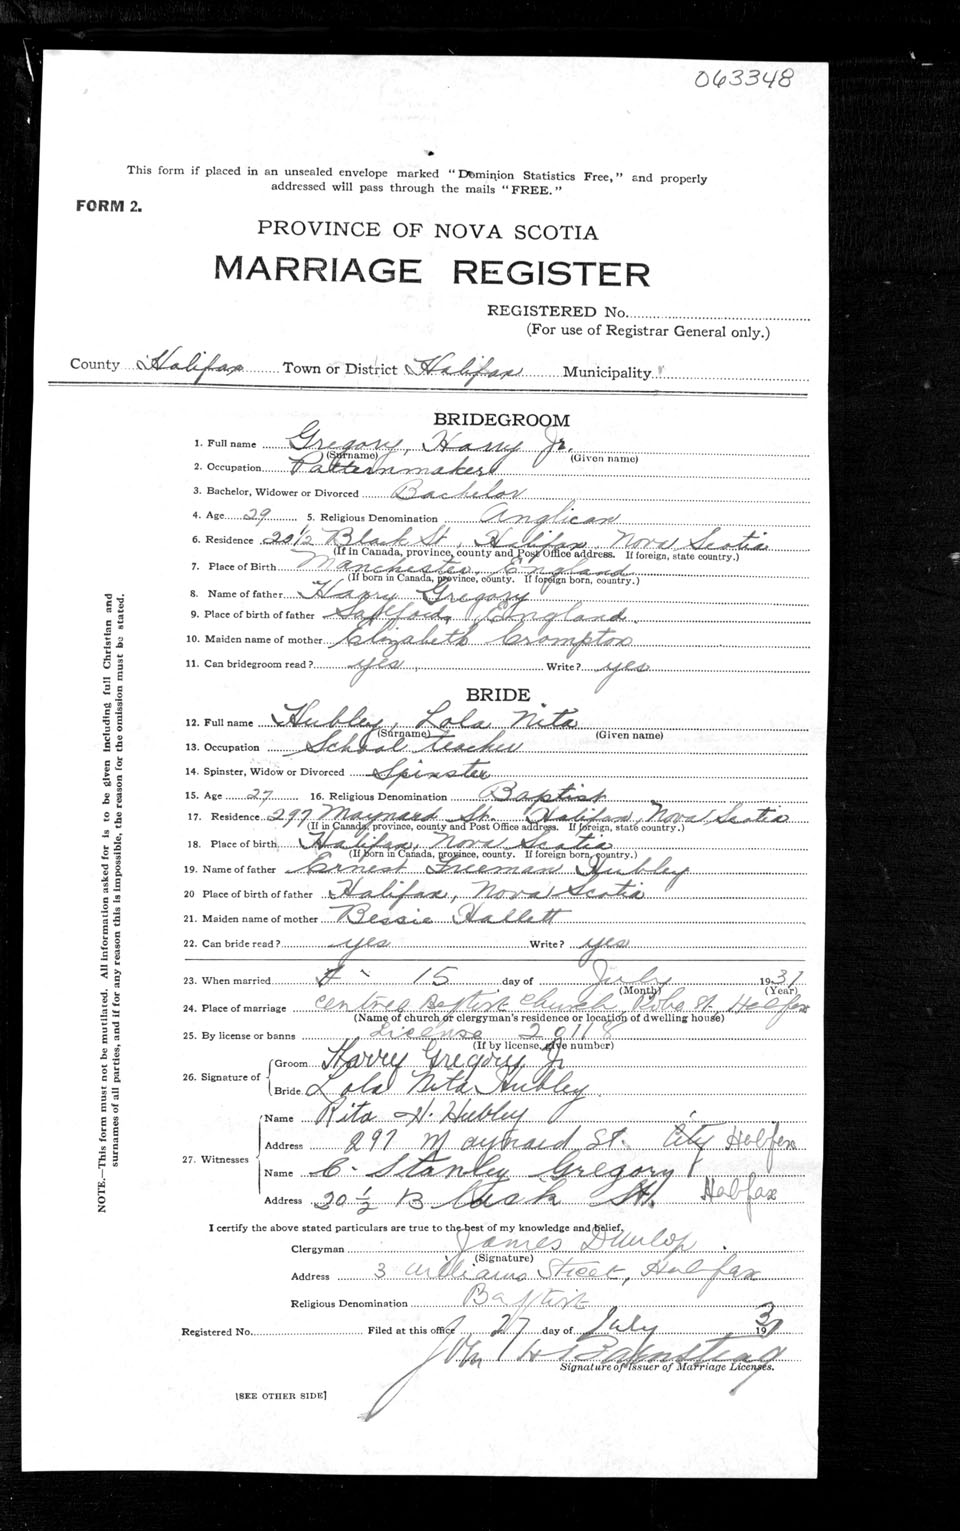 063348
This form if placed in an unsealed envelope marked "Dominion Statistics Free," and properly
addressed will pass through the mails "FREE."
FORM 2.
PROVINCE OF NOVA SCOTIA
MARRIAGE REGISTER
REGISTERED No.
(For use of Registrar General only.)
County Halifax Town or District Halifax Municipality
BRIDEGROOM
1. Full name Gregory, Harry Jr.
(Surname) (Given name)
2. Occupation Patternmaker
3. Bachelor, Widower or Divorced Bachelor
4. Age 29 5. Religious Denomination Anglican
6. Residence 20½ Black St., Halifax, Nova Scotia
(If in Canada, province, county and Post Office address. If foreign, state country.)
7. Place of Birth Manchester, England
(If born in Canada, province, county. If foreign born, country.)
8. Name of father Harry Gregory
9. Place of birth of father Salford, England
10. Maiden name of mother Elizabeth Crompton
11. Can bridegroom read? yes Write? yes
BRIDE
12. Full name Hubley, Lola Nita
(Surname) (Given name)
13. Occupation School teacher
14. Spinster, Widow or Divorced Spinster
15. Age 27 16. Religious Denomination Baptist
17. Residence 297 Maynard St. Halifax, Nova Scotia
(If in Canada, province, county and Post Office address. If foreign, state country.)
18. Place of birth Halifax, Nova Scotia
(If born in Canada, province, county. If foreign born, country.)
19. Name of father Ernest Freeman Hubley
20 Place of birth of father Halifax, Nova Scotia
21. Maiden name of mother Bessie Hallett
22. Can bride read? yes Write? yes
23. When married 15 day of July 1931
(Month) (Year)
24. Place of marriage Baptist Church, St. Halifax
(Name of church or clergyman's residence or location of dwelling house)
25. By license or banns License 20118
(If by license, give number)
26. Signature of Groom Harry Gregory Jr
Bride Lola Nita Hubley
27. Witnesses Name Rita H. Hubley
Address 297 Maynard St. City Halifax
Name C. Stanley Gregory
Address 20½ Black St. Halifax
I certify the above stated particulars are true to the best of my knowledge and belief.
Clergyman James Dunlop
(Signature)
Address 3 Williams Street, Halifax
Religious Denomination Baptist
Registered No. Filed at this office 27 day of July 1931
John H
Signature of Issuer of Marriage Licenses.
[SEE OTHER SIDE]
NOTE.—This form must not be mutilated. All information asked for is to be given including full Christian and
surnames of all parties, and if for any reason this is impossible, the reason for the omission must be stated.